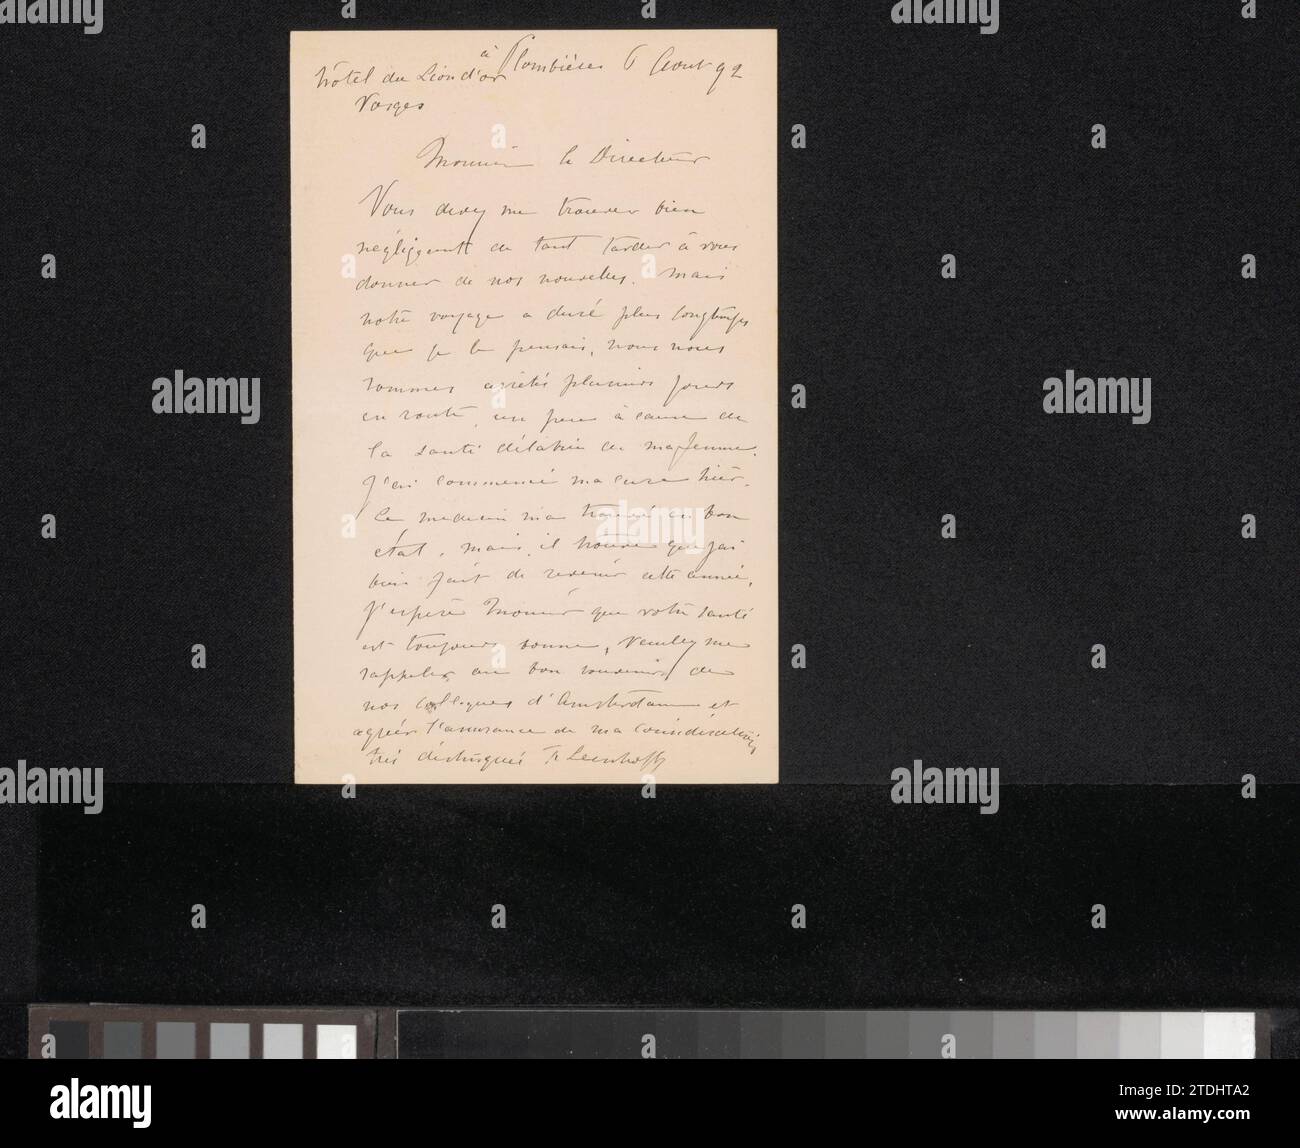 à Plombières 6 Aout 92
hôtel du Lion d'or
Vosges
Monsieur le Directeur
Vous devez me trouver bien
négliggent de tant tarder à vous
donner de nos nouvelles. Mais
notre voyage a duré plus longtemps
que je le pensais, nous nous
sommes arrêtés plusieurs jours
en route, un peu à cause de
la santé délabrée de ma femme.
J'ai commencé ma cure hier.
Le medecin m'a trouvé en bon
état, mais il trouve que j'ai
bien fait de revenir cette année,
J'espère Monsieur que votre santé
est toujours bonne, Veuillez me
rappeler au bon souvenir de
nos collegues d'Amsterdam et
agréer l'assurance de ma considération
très distinguée F. Leenhoff
alamy
Image ID: 2TDHTA2
www.alamy.com